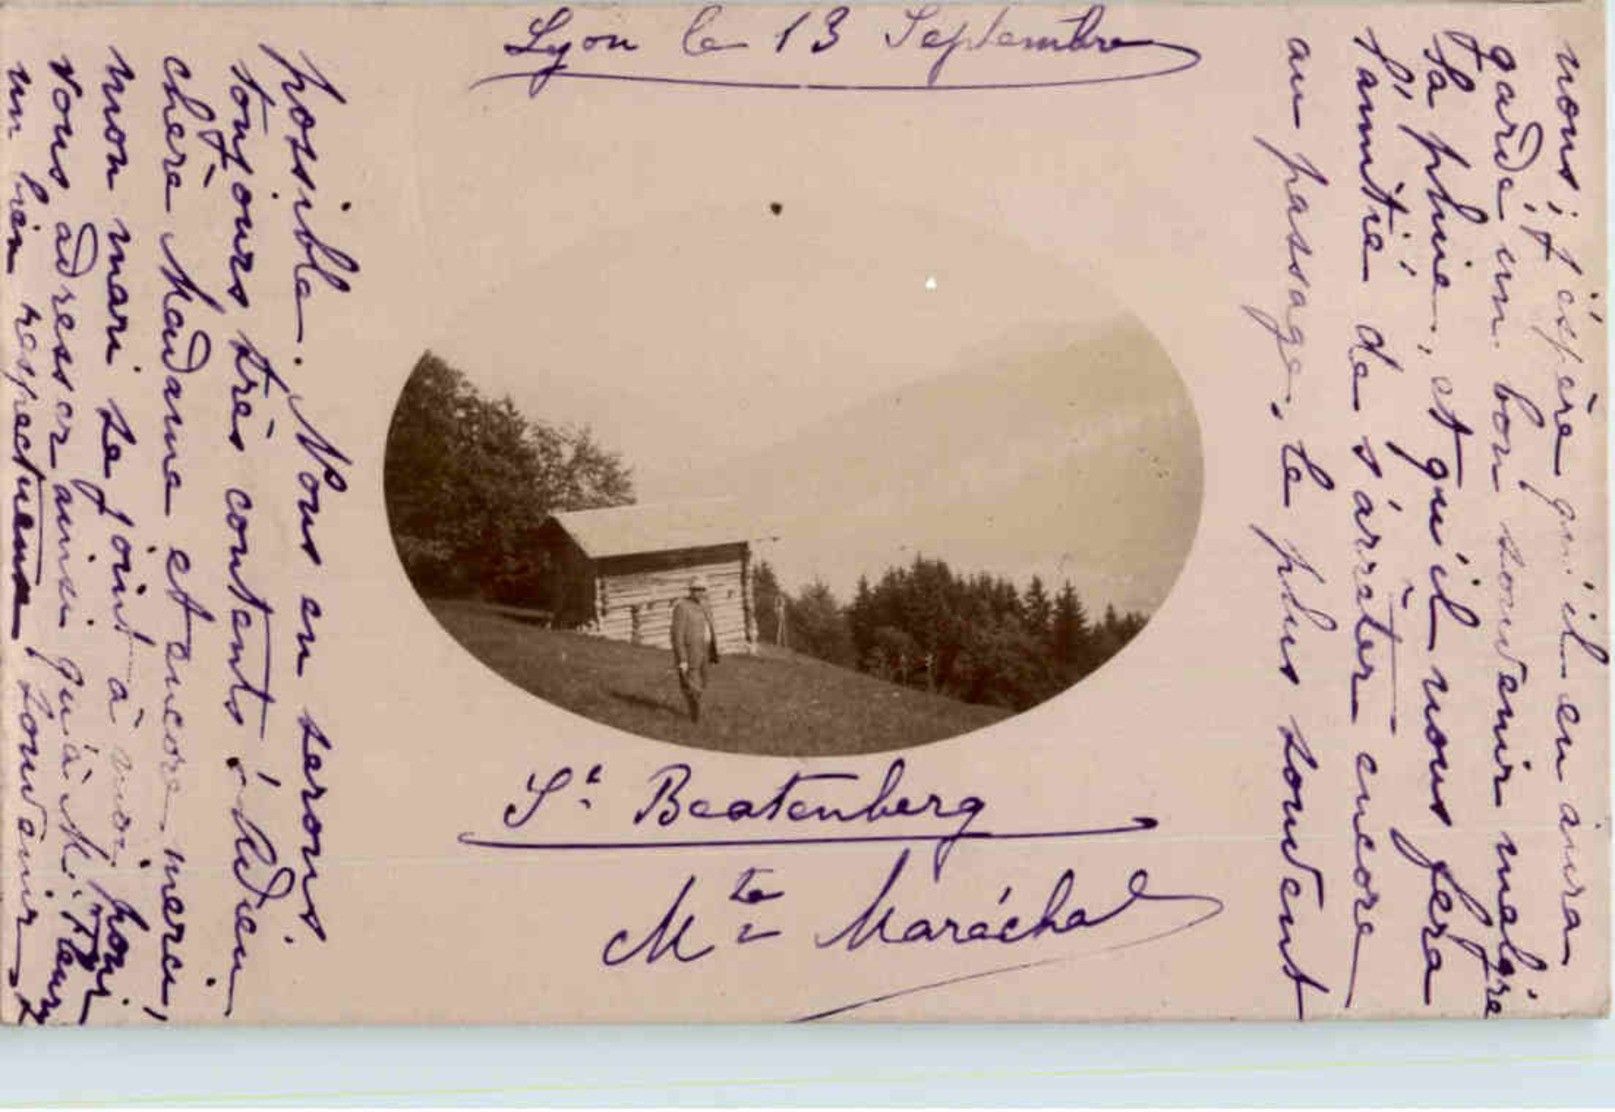 Lyon le 13 Septembre
nous ; j'espère qu'il en aura
gardé un bon souvenir malgré
la pluie, et qu'il nous fera
l'amitié de s'arrêter encore
au passage, le plus souvent
possible. Nous en serons
toujours très contents. Adieu
chère Madame et encore merci,
mon mari se joint à moi pour
vous adresser ainsi qu'à M.
un bien respectueux souvenir
St Beatenberg
Mte Maréchal